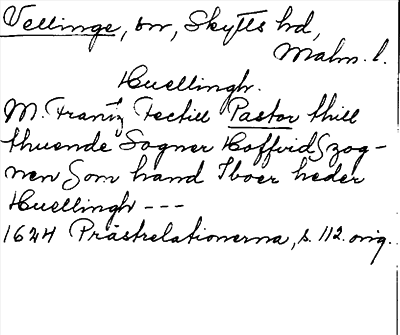 Vellinge, sn, Skytts hd,
Malm. l.
Huellingh.
M. Frantz Techill Pastor thill
thuende Sogner Hoffvid Szog-
nen Som hand Iboer heder
Huellingh ---
1624 Prästrelationerna, s. 112. orig.